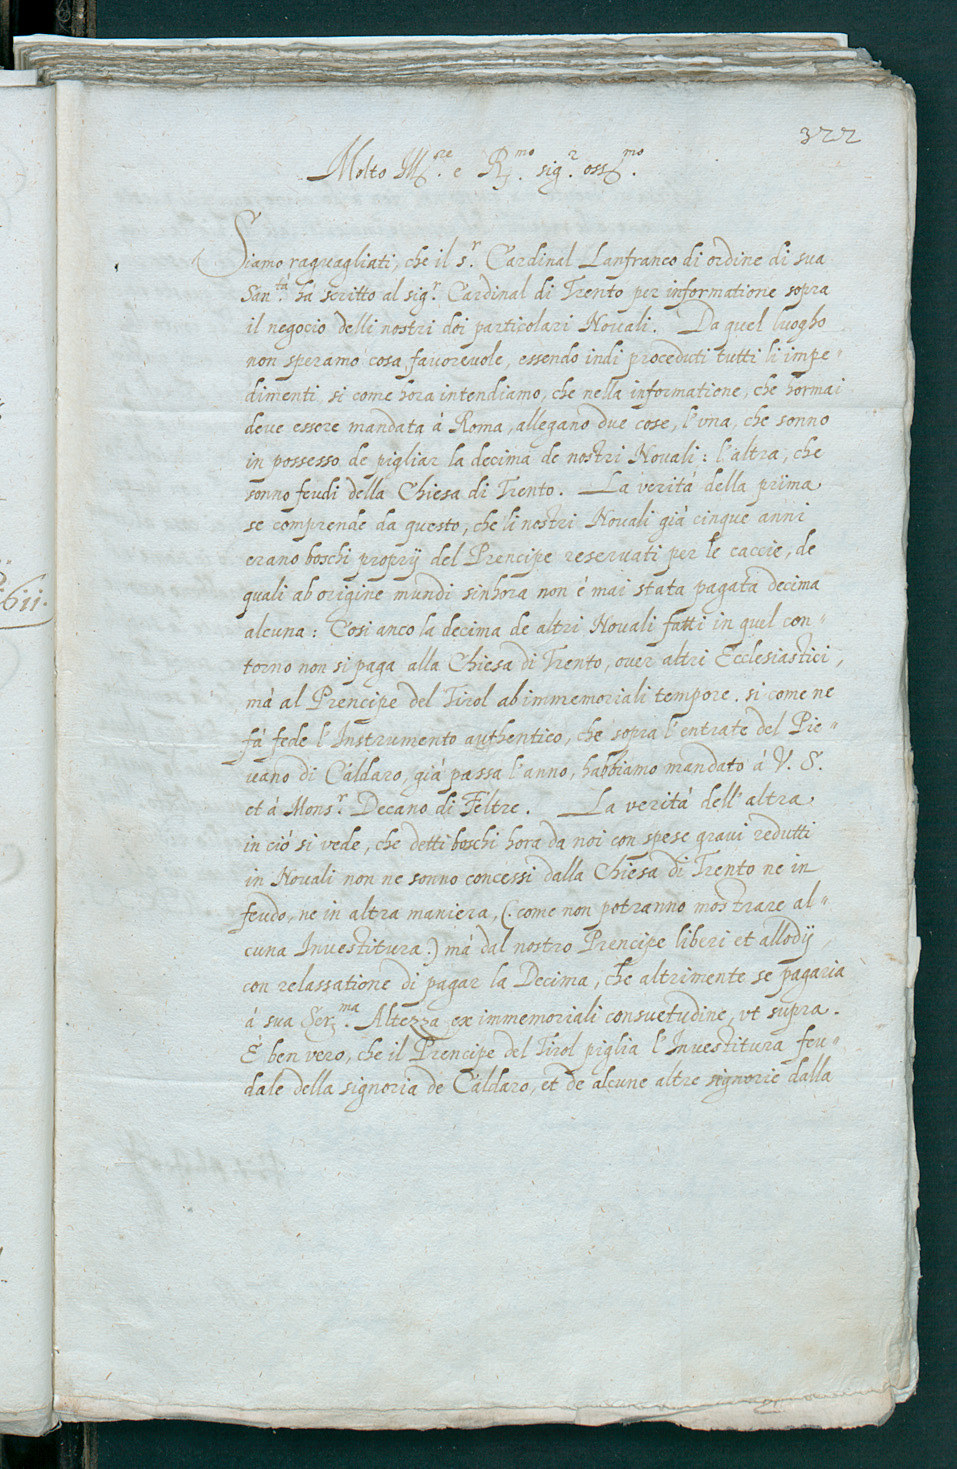 322
Molto Ill.re e R.mo sig.r oss.mo
Siamo raguagliati, che il s.r Cardinal Lanfranco di ordine di sua
San.tà hà scritto al sig.r Cardinal di Trento per informatione sopra
il negocio delli nostri doi particolari Nouali. Da quel luogho
non speramo cosa fauoreuole, essendo indi proceduti tutti li impe-
dimenti, si come hora intendiamo, che nella informatione, che hormai
deue essere mandata à Roma, allegano due cose, l'vna, che sonno
in possesso de pigliar la decima de nostri Nouali: l'altra, che
sonno feudi della Chiesa di Trento. La verità della prima
se comprende da questo, che li nostri Nouali già cinque anni
erano boschi proprij del Prencipe reseruati per le caccie, de
quali ab origine mundi sinhora non è mai stata pagata decima
alcuna: Cosi anco la decima de altri Nouali fatti in quel con-
torno non si paga alla Chiesa di Trento, ouer altri Ecclesiastici,
mà al Prencipe del Tirol ab immemoriali tempore. si come ne
fà fede l'Instrumento authentico, che sopra l'entrate del Pie-
uano di Caldaro, già passa l'anno, habbiamo mandato à V. S.
et à Mons.r Decano di Feltre. La verità dell'altra
in ciò si vede, che detti boschi hora da noi con spese graui redutti
in Nouali non ne sonno concessi dalla Chiesa di Trento ne in
feudo, ne in altra maniera, (. come non potranno mostrare al-
cuna Inuestitura.) mà dal nostro Prencipe liberi et allodij,
con relassatione di pagar la Decima, che altrimente se pagaria
à sua Ser.ma Altezza ex immemoriali consuetudine, vt supra.
È ben vero, che il Prencipe del Tirol piglia l'Inuestitura feu-
dale della signoria de Caldaro, et de alcune altre signorie dalla
611.